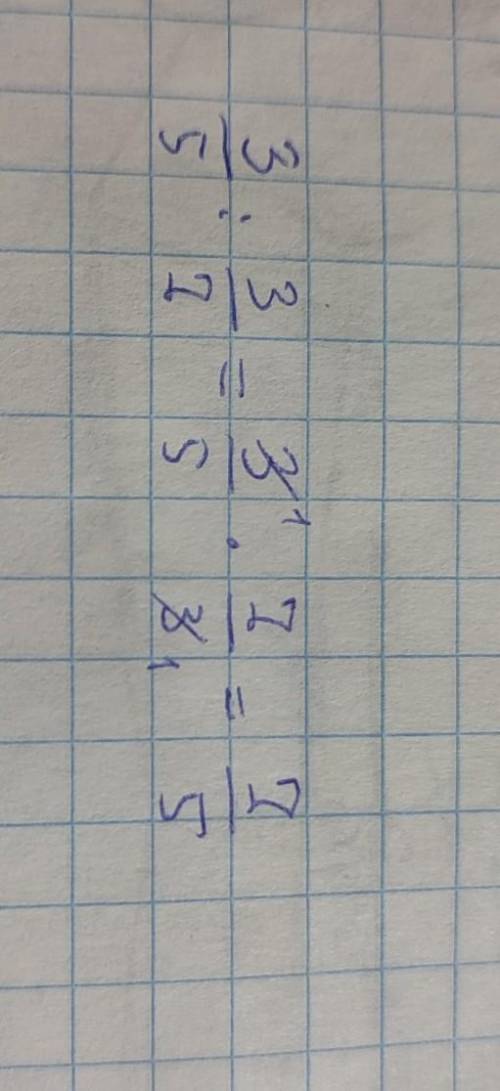 3/5 : 3/7 = 3¹/5 · 7/3₁ = 7/5